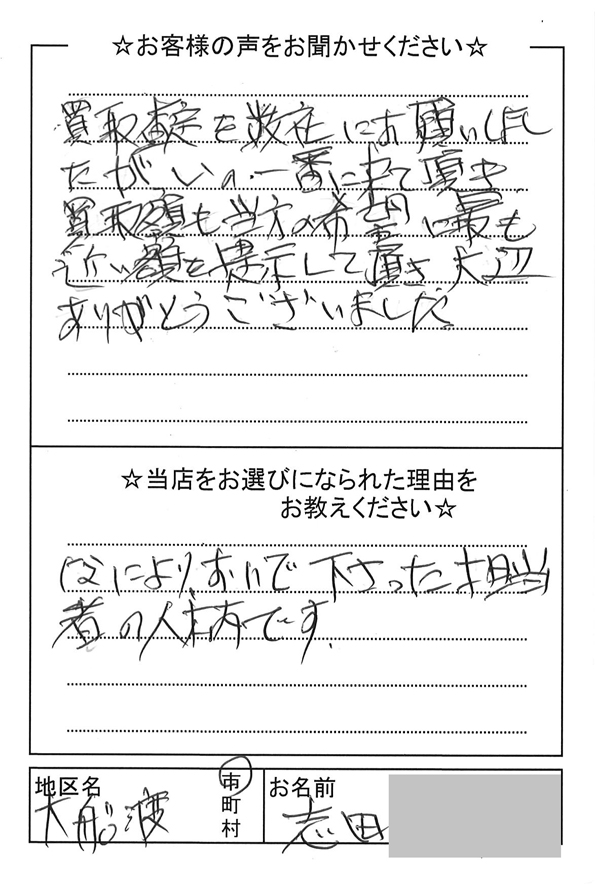 ☆お客様の声をお聞かせください☆
買取査定を数社にお願いしまし
たがいの一番に来て頂き
買取額も当方の希望に最も
近い額を提示して頂き大辺
ありがとうございました
☆当店をお選びになられた理由を
お教えください☆
なによりおいで下さった担当
者の人柄です.
地区名
大船渡
市
町
村
お名前
志田